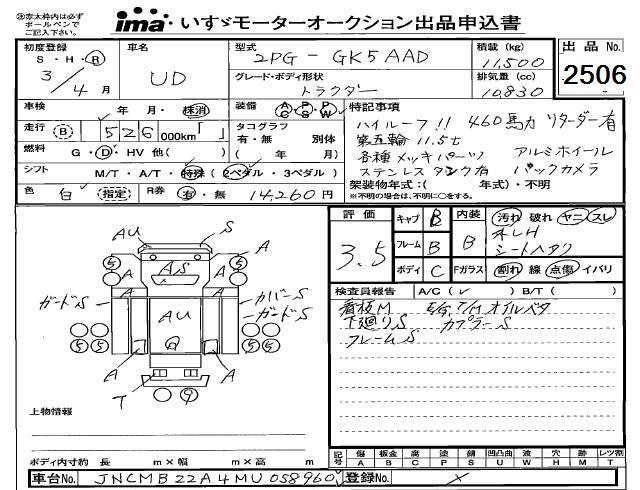 ※赤太枠内は必ず
ボールペンで
ご記入下さい。
ima いすゞモーターオークション出品申込書
初度登録 車名 型式 積載 (kg) 出品 No.
S・H・R 2PG-GK5AAD 11,500
3/4月 UD グレード・ボディ形状 排気量 (cc) 2506
トラクター 10,830
車検 年 月・抹消 装備 AC PS PW 特記事項
走行 (B) 526 000km「 」 タコグラフ ハイルーフ!! 460馬力 リターダー有
有・無 別体 第五輪 11.5t
燃料 G・D・HV 他( ) ( 年 月) 各種メッキパーツ アルミホイール
シフト M/T・A/T・特殊(2ペダル・3ペダル) ステンレスタンク有 バックカメラ
色 白 (指定) R券 有・無 14,260円 架装物年式:( 年式)・不明
※不明の場合は、不明に○をする。
評価 キャブ B 内装 汚れ 破れ ヤニ スレ
3.5 フレーム B B
シートヘタク
ボディ C Fガラス 割れ 線 点傷 イバリ
検査員報告 A/C(✓) B/T( )
看板M E/G. T/M オイルベタ
下廻りS カプラーS
フレームS
AU S
A A
5 AS 5
A A
ガードS カバーS
AU ガードS
5 5 G 5 5
A A
T 9
上物情報
ボディ内寸約 長 m×幅 m×高 m
記号 傷 板金 腐 塗 錆 凹凸曲 波 穴 時 レツ割
A B C P S U W H M T
車台No. JNCMB22A4MU058960 登録No. ×